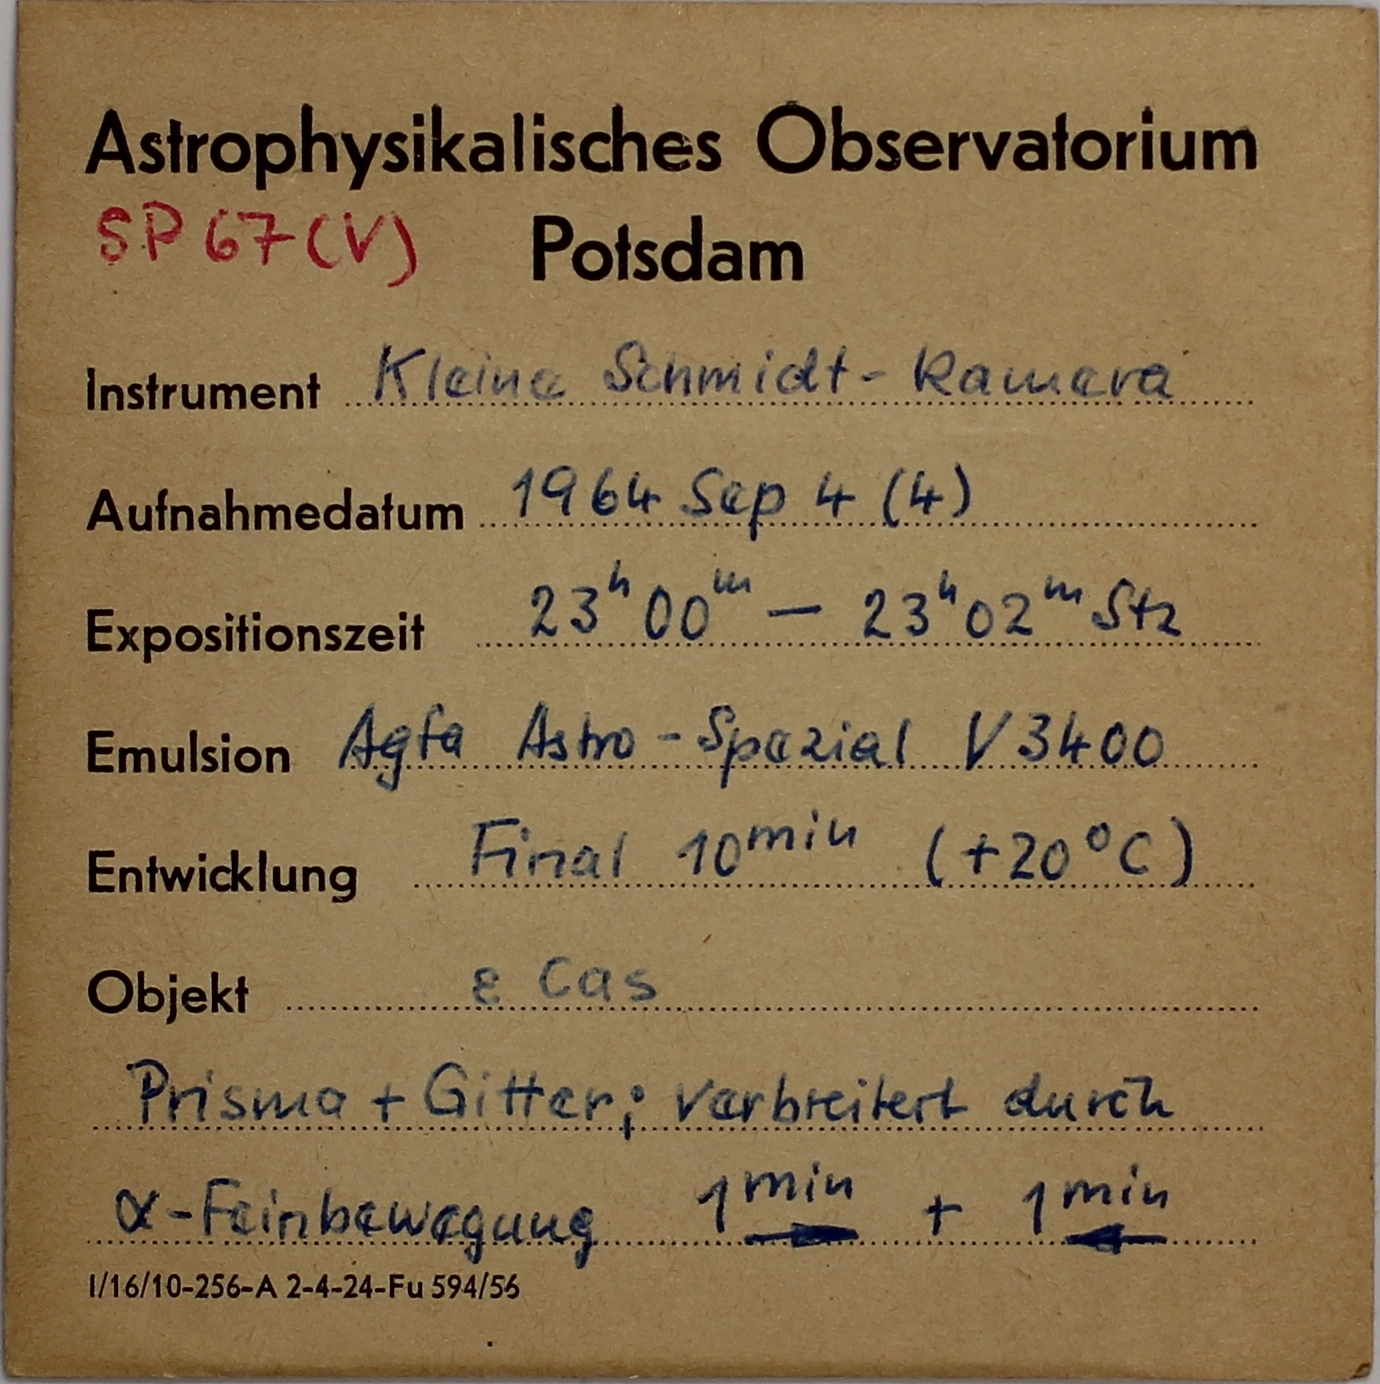 Astrophysikalisches Observatorium
SP 67 (V) Potsdam
Instrument Kleine Schmidt-Kamera
Aufnahmedatum 1964 Sep 4 (4)
Expositionszeit 23ʰ00ᵐ — 23ʰ02ᵐ Stz
Emulsion Agfa Astro-Spezial V 3400
Entwicklung Final 10ᵐⁱⁿ (+20°C)
Objekt ε Cas
Prisma + Gitter; verbreitert durch
α-Feinbewegung 1ᵐⁱⁿ → + 1ᵐⁱⁿ ←
I/16/10-256-A 2-4-24-Fu 594/56